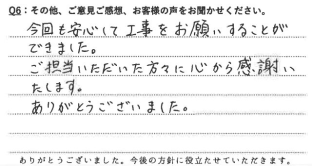 Q6：その他、ご意見ご感想、お客様の声をお聞かせください。
今回も安心して工事をお願いすることが
できました。
ご担当いただいた方々に心から感謝い
たします。
ありがとうございました。
ありがとうございました。今後の方針に役立たせていただきます。